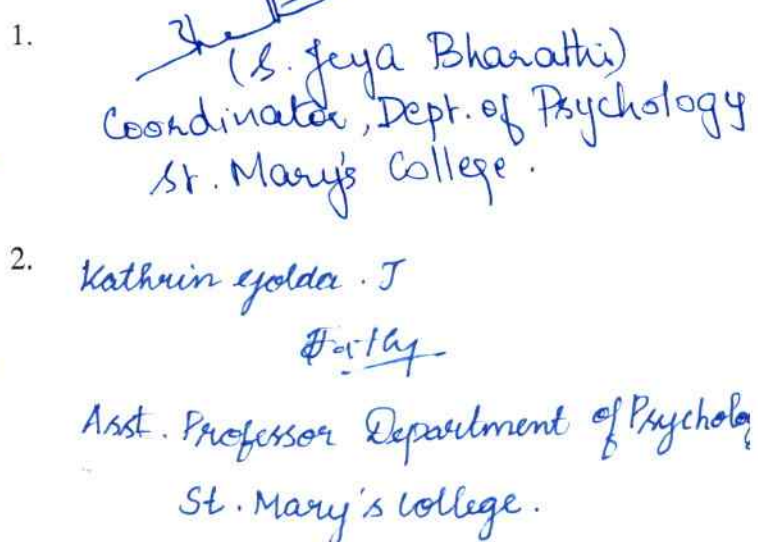 1.
(S. Jeya Bharathi)
Coordinator, Dept. of Psychology
St. Mary's College.
2. Kathrin Golda . J
Asst. Professor Department of Psycholog
St. Mary's College.